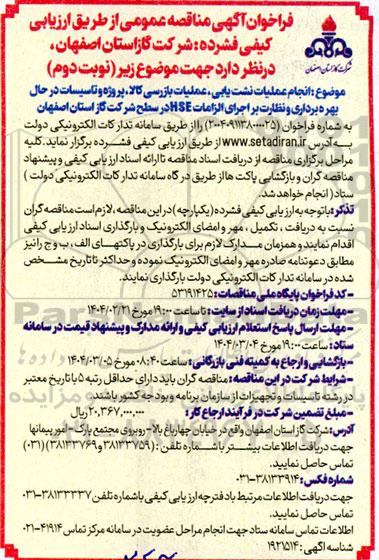 فراخوان آگهی مناقصه عمومی از طریق ارزیابی
کیفی فشرده: شرکت گاز استان اصفهان،
در نظر دارد جهت موضوع زیر (نوبت دوم)
شرکت گاز استان اصفهان
موضوع: انجام عملیات نشت یابی، عملیات بازرسی کالا، پروژه و تاسیسات در حال
بهره برداری و نظارت بر اجرای الزامات HSE در سطح شرکت گاز استان اصفهان
به شماره فراخوان (۲۰۰۴۰۹۱۱۳۸۰۰۰۰۲۵) را از طریق سامانه تدارکات الکترونیکی دولت
به آدرس www.setadiran.ir از طریق ارزیابی کیفی فشرده برگزار نماید. کلیه
مراحل برگزاری مناقصه از دریافت اسناد مناقصه تا ارائه اسناد ارزیابی کیفی و پیشنهاد
مناقصه گران و بازگشایی پاکت ها از طریق درگاه سامانه تدارکات الکترونیکی دولت (
ستاد) انجام خواهد شد.
تذکر: با توجه به ارزیابی کیفی فشرده (یکپارچه) در این مناقصه، لازم است مناقصه گران
نسبت به دریافت، تکمیل، مهر و امضای الکترونیک و بارگذاری اسناد ارزیابی کیفی
اقدام نمایند و همزمان مدارک لازم برای بارگذاری در پاکتهای الف، ب و ج را نیز
مطابق دعوتنامه صادره مهر و امضای الکترونیک نموده و حداکثر تا تاریخ مشخص
شده در سامانه تدارکات الکترونیکی دولت بارگذاری نمایند.
- کد فراخوان پایگاه ملی مناقصات: ۵۳۱۹۱۴۲۵
- مهلت زمان دریافت اسناد از سایت: تا ساعت ۱۹:۰۰ مورخ ۱۴۰۴/۰۲/۲۱
- مهلت ارسال پاسخ استعلام ارزیابی کیفی و ارائه مدارک و پیشنهاد قیمت در سامانه
ستاد: ساعت ۱۹:۰۰ مورخ ۱۴۰۴/۰۳/۰۴
- بازگشایی و ارجاع به کمیته فنی بازرگانی: ساعت ۰۸:۴۰ مورخ ۱۴۰۴/۰۳/۰۵
- شرایط شرکت در این مناقصه: مناقصه گران باید دارای حداقل رتبه ۵ با تاریخ معتبر
در رشته تاسیسات و تجهیزات از سازمان برنامه و بودجه کشور باشند.
- مبلغ تضمین شرکت در فرآیند ارجاع کار: ۲۰,۳۶۷,۰۰۰,۰۰۰ ریال
آدرس: شرکت گاز استان اصفهان واقع در خیابان چهارباغ بالا - روبروی مجتمع پارک - امور پیمانها
جهت دریافت اطلاعات بیشتر با شماره تلفن: (۳۸۱۳۳۷۵۹ و ۳۸۱۳۳۷۶۹) (۰۳۱)
تماس حاصل نمایید.
شماره فکس: ۳۸۱۳۳۹۱۴-۰۳۱
جهت دریافت اطلاعات مرتبط با دفترچه ارزیابی کیفی با شماره تلفن ۳۸۱۳۳۳۳۷-۰۳۱
تماس حاصل نمایید.
اطلاعات تماس سامانه ستاد جهت انجام مراحل عضویت در سامانه مرکز تماس ۴۱۹۱۴-۰۲۱
شناسه آگهی: ۱۹۲۱۵۱۴